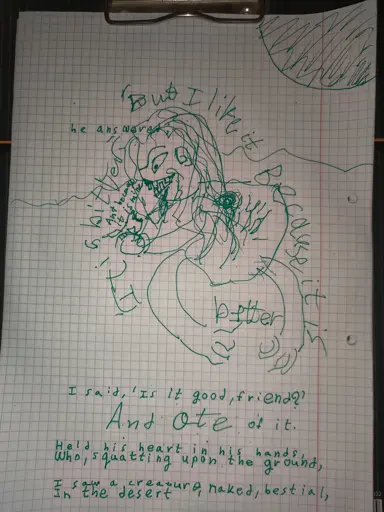 'But I like it
Because it is
bitter
he answered
'It is bitter,
And because
it is my
I said, 'Is it good, friend?'
And ate of it.
Held his heart in his hands,
Who, squatting upon the ground,
I saw a creature, naked, bestial,
In the desert